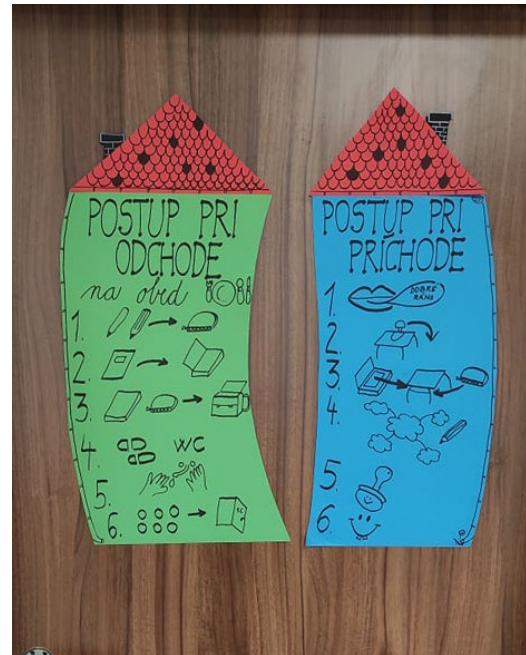 POSTUP PRI
ODCHODE
na obed
1.
2.
3.
4. WC
5.
6.
POSTUP PRI
PRÍCHODE
1. DOBRÉ
RÁNO
2.
3.
4.
5.
6.